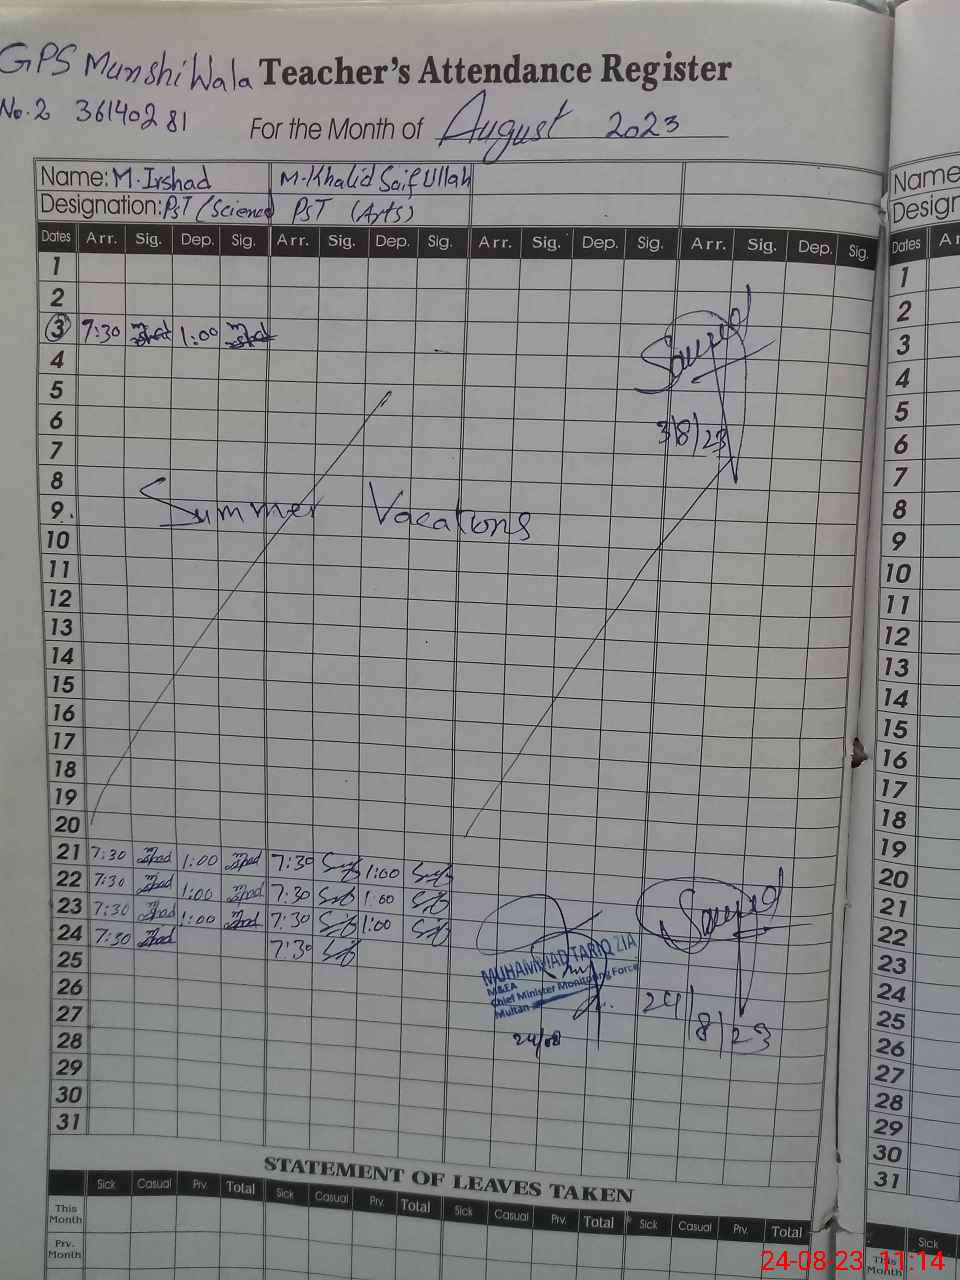 GPS Munshi Wala Teacher's Attendance Register
No. 2 36140281 For the Month of August 2023
Name: M. Irshad M. Khalid Saif Ullah
Designation: PST (Science) PST (Arts)
Dates Arr. Sig. Dep. Sig. Arr. Sig. Dep. Sig. Arr. Sig. Dep. Sig. Arr. Sig. Dep. Sig.
1
2
3 7:30 1:00
4
5
6
7 3/8/23
8
9 Summer Vacations
10
11
12
13
14
15
16
17
18
19
20
21 7:30 1:00 7:30 1:00
22 7:30 1:00 7:30 1:00
23 7:30 1:00 7:30 1:00
24 7:30 7:30
25
MUHAMMAD TARIQ ZIA
M&EA
Chief Minister Monitoring Force
Multan
24/08
24/8/23
26
27
28
29
30
31
STATEMENT OF LEAVES TAKEN
Sick Casual Prv. Total Sick Casual Prv. Total Sick Casual Prv. Total Sick Casual Prv. Total
This Month
Prv. Month
Name
Design
Dates A
1
2
3
4
5
6
7
8
9
10
11
12
13
14
15
16
17
18
19
20
21
22
23
24
25
26
27
28
29
30
31
Sick
This Month
24-08-23 11:14